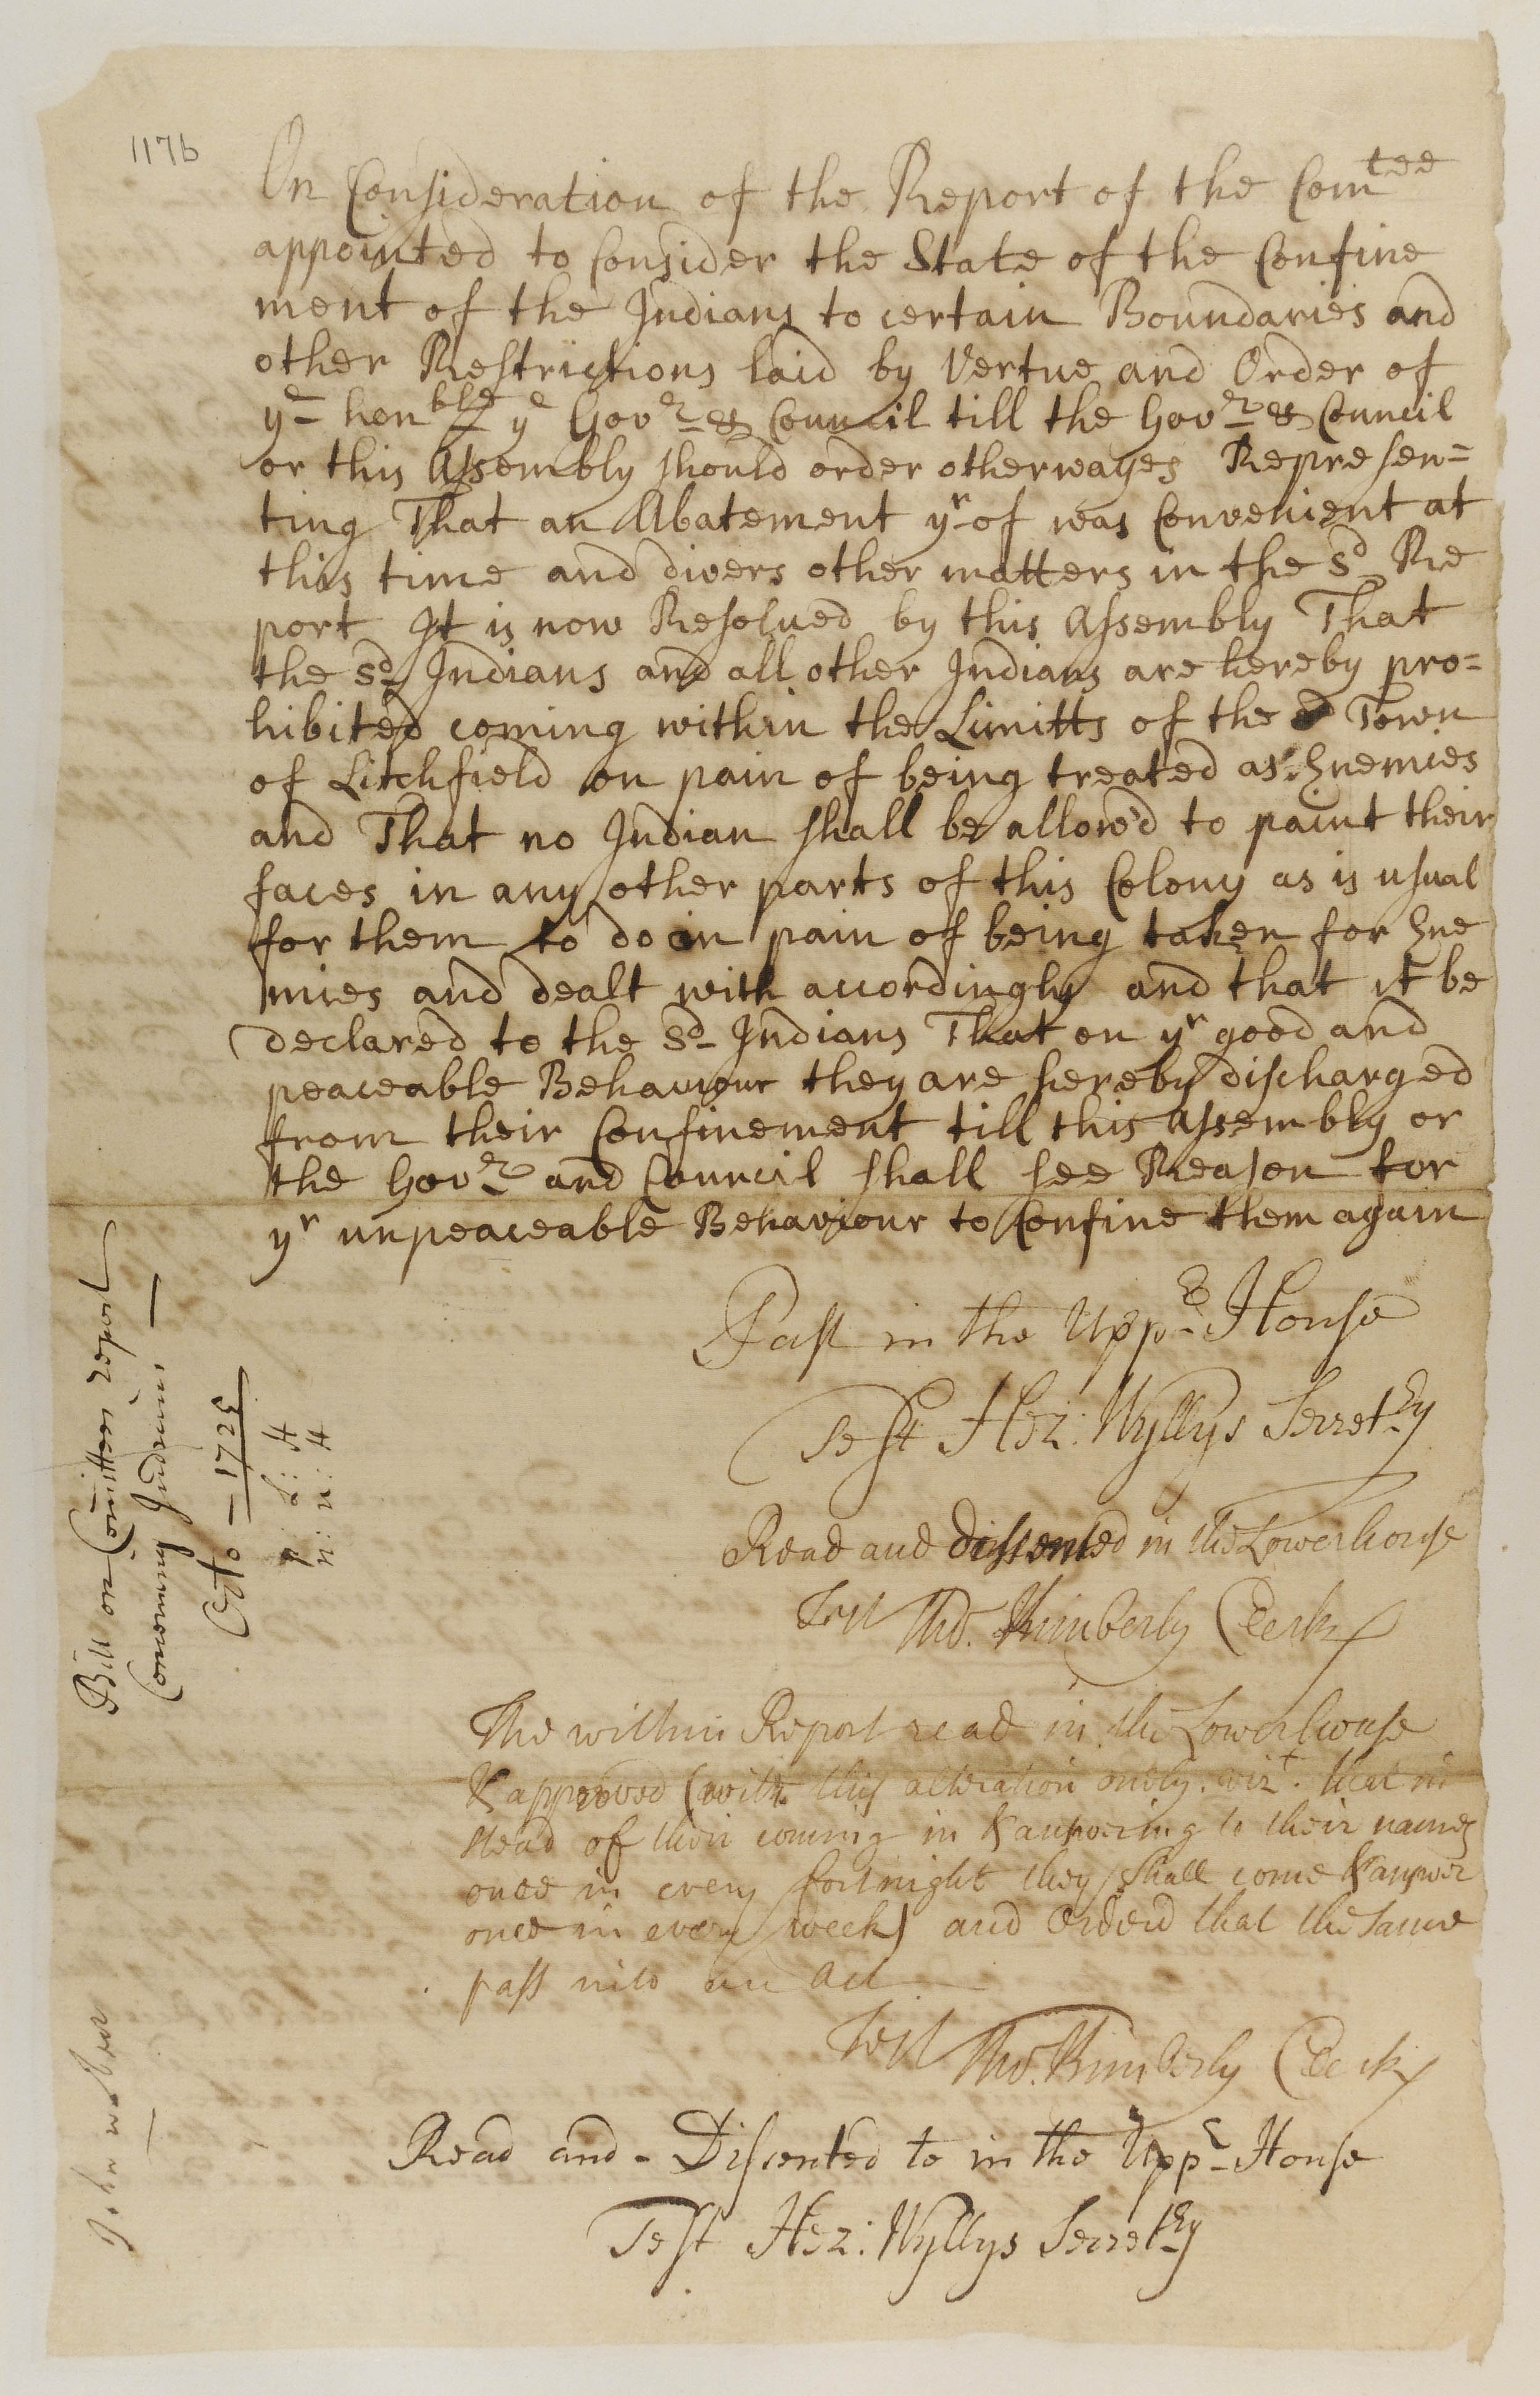 117b
On Consideration of the Report of the Com^tee
appointed to Consider the State of the Confine
ment of the Indians to certain Boundaries and
other Restrictions laid by Vertue and Order of
y^e hon^ble y^e Gov^r & Council till the Gov^r & Council
or this Assembly should order otherwayes Represen=
ting That an Abatement y^r of was Convenient at
this time and divers other matters in the S^d Re
port It is now Resolved by this Assembly That
the S^d Indians and all other Indians are hereby pro=
hibited coming within the Limitts of the Town
of Litchfield on pain of being treated as Enemies
and That no Indian shall be allow'd to paint their
faces in any other parts of this Colony as is usual
for them to do on pain of being taken for Ene
mies and dealt with accordingly and that it be
declared to the S^d Indians That on y^r good and
peaceable Behaviour they are hereby discharged
from their Confinement till this Assembly or
the Gov^r and Council shall see Reason for
y^r unpeaceable Behaviour to Confine them again
Past in the Upp^r House
Test Hez: Wyllys Secret^ry
Read and dissented in the Lower house
Test Tho. Kimberly Clerk
The within Report read in the Lower house
& approved (with this alteration onely. viz^t. that in
stead of their coming in & answering to their names
once in every fortnight they shall come & answer
once in every week) and Order'd that the same
pass into an Act
Test Tho. Kimberly Clerk
Read and - Dissented to in the Upp^r House
Test Hez: Wyllys Secret^ry
Bill on Comittees report
Concerning Indians,
Octo - 1725
p: d: H
n: n: H
John